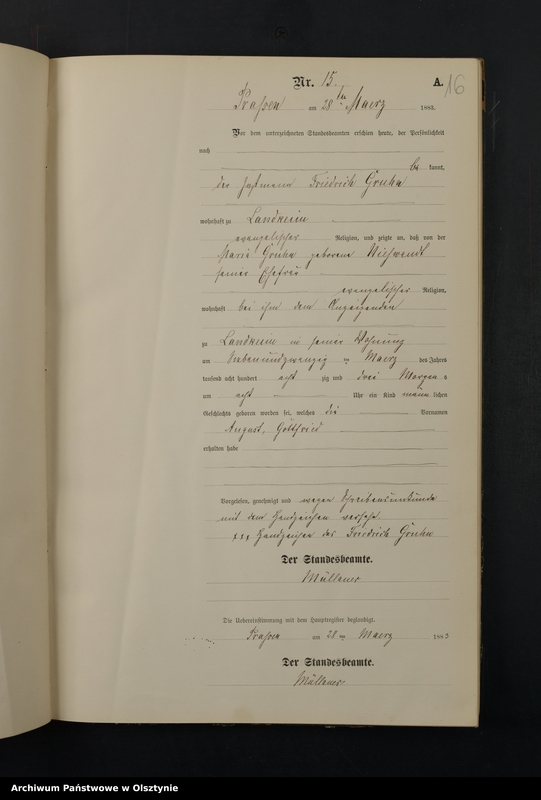 Nr. 15.
A. 16
Prassen am 28ten Maerz 1883.
Vor dem unterzeichneten Standesbeamten erschien heute, der Persönlichkeit
nach
be kannt,
der Friedrich Gruhn
wohnhaft zu Landkeim
evangelischer Religion, und zeigte an, daß von der
Marie Gruhn geborene
seiner Ehefrau
evangelischer Religion,
wohnhaft bei ihm dem Anzeigenden
zu Landkeim in seiner Wohnung
am siebenundzwanzig ten Maerz des Jahres
tausend acht hundert acht zig und drei Morgens
um acht Uhr ein Kind männ lichen
Geschlechts geboren worden sei, welches die Vornamen
August, Gottfried
erhalten habe
Vorgelesen, genehmigt und wegen Schreibensunkunde
mit dem Handzeichen versehen.
xxx Handzeichen des Friedrich Gruhn
Der Standesbeamte.
Die Uebereinstimmung mit dem Hauptregister beglaubigt.
Prassen am 28ten Maerz 1883
Der Standesbeamte.
Archiwum Państwowe w Olsztynie